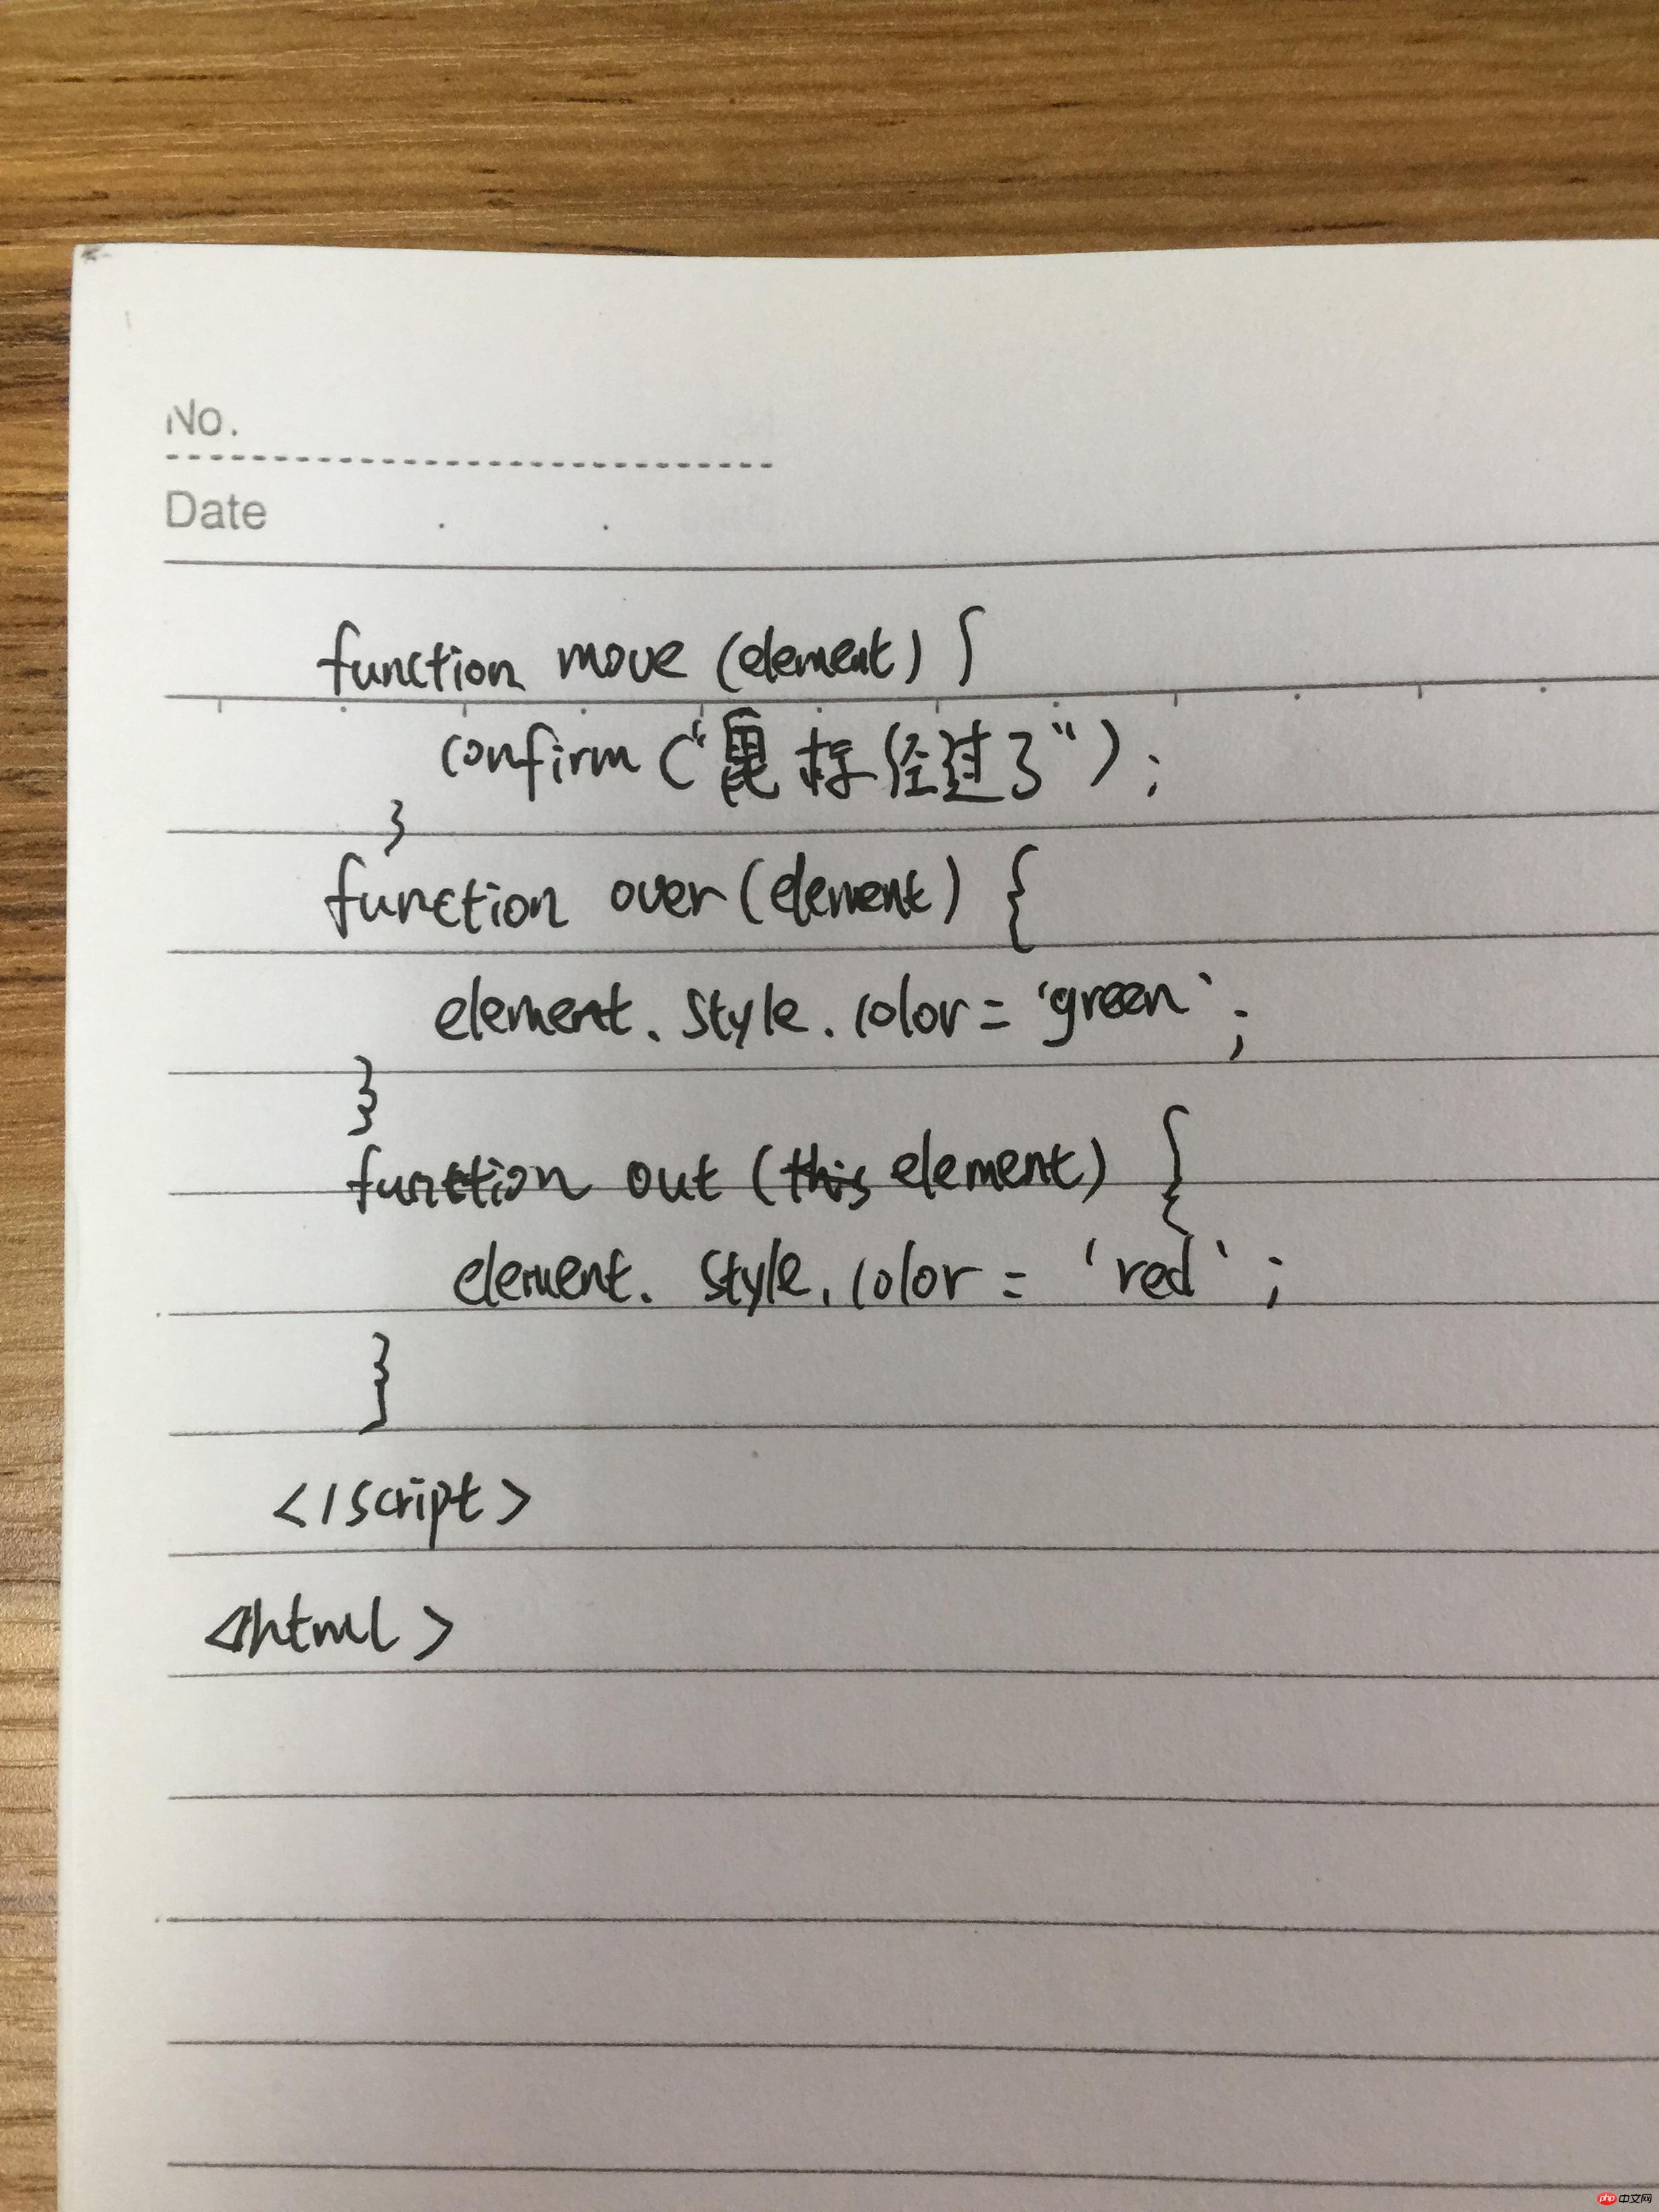 No.
Date
function move (element) {
confirm ("鼠标经过了");
}
function over (element) {
element.style.color = 'green';
}
function out (this element) {
element.style.color = 'red';
}
</script>
</html>
php 中文网